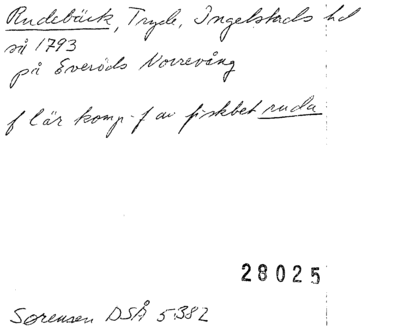 Rudebäck, Tryde, Ingelstads hd
så 1793
på Everöds Norrevång
f lär komp-f av fiskbet ruda
28025
Sørensen DSÅ 5382